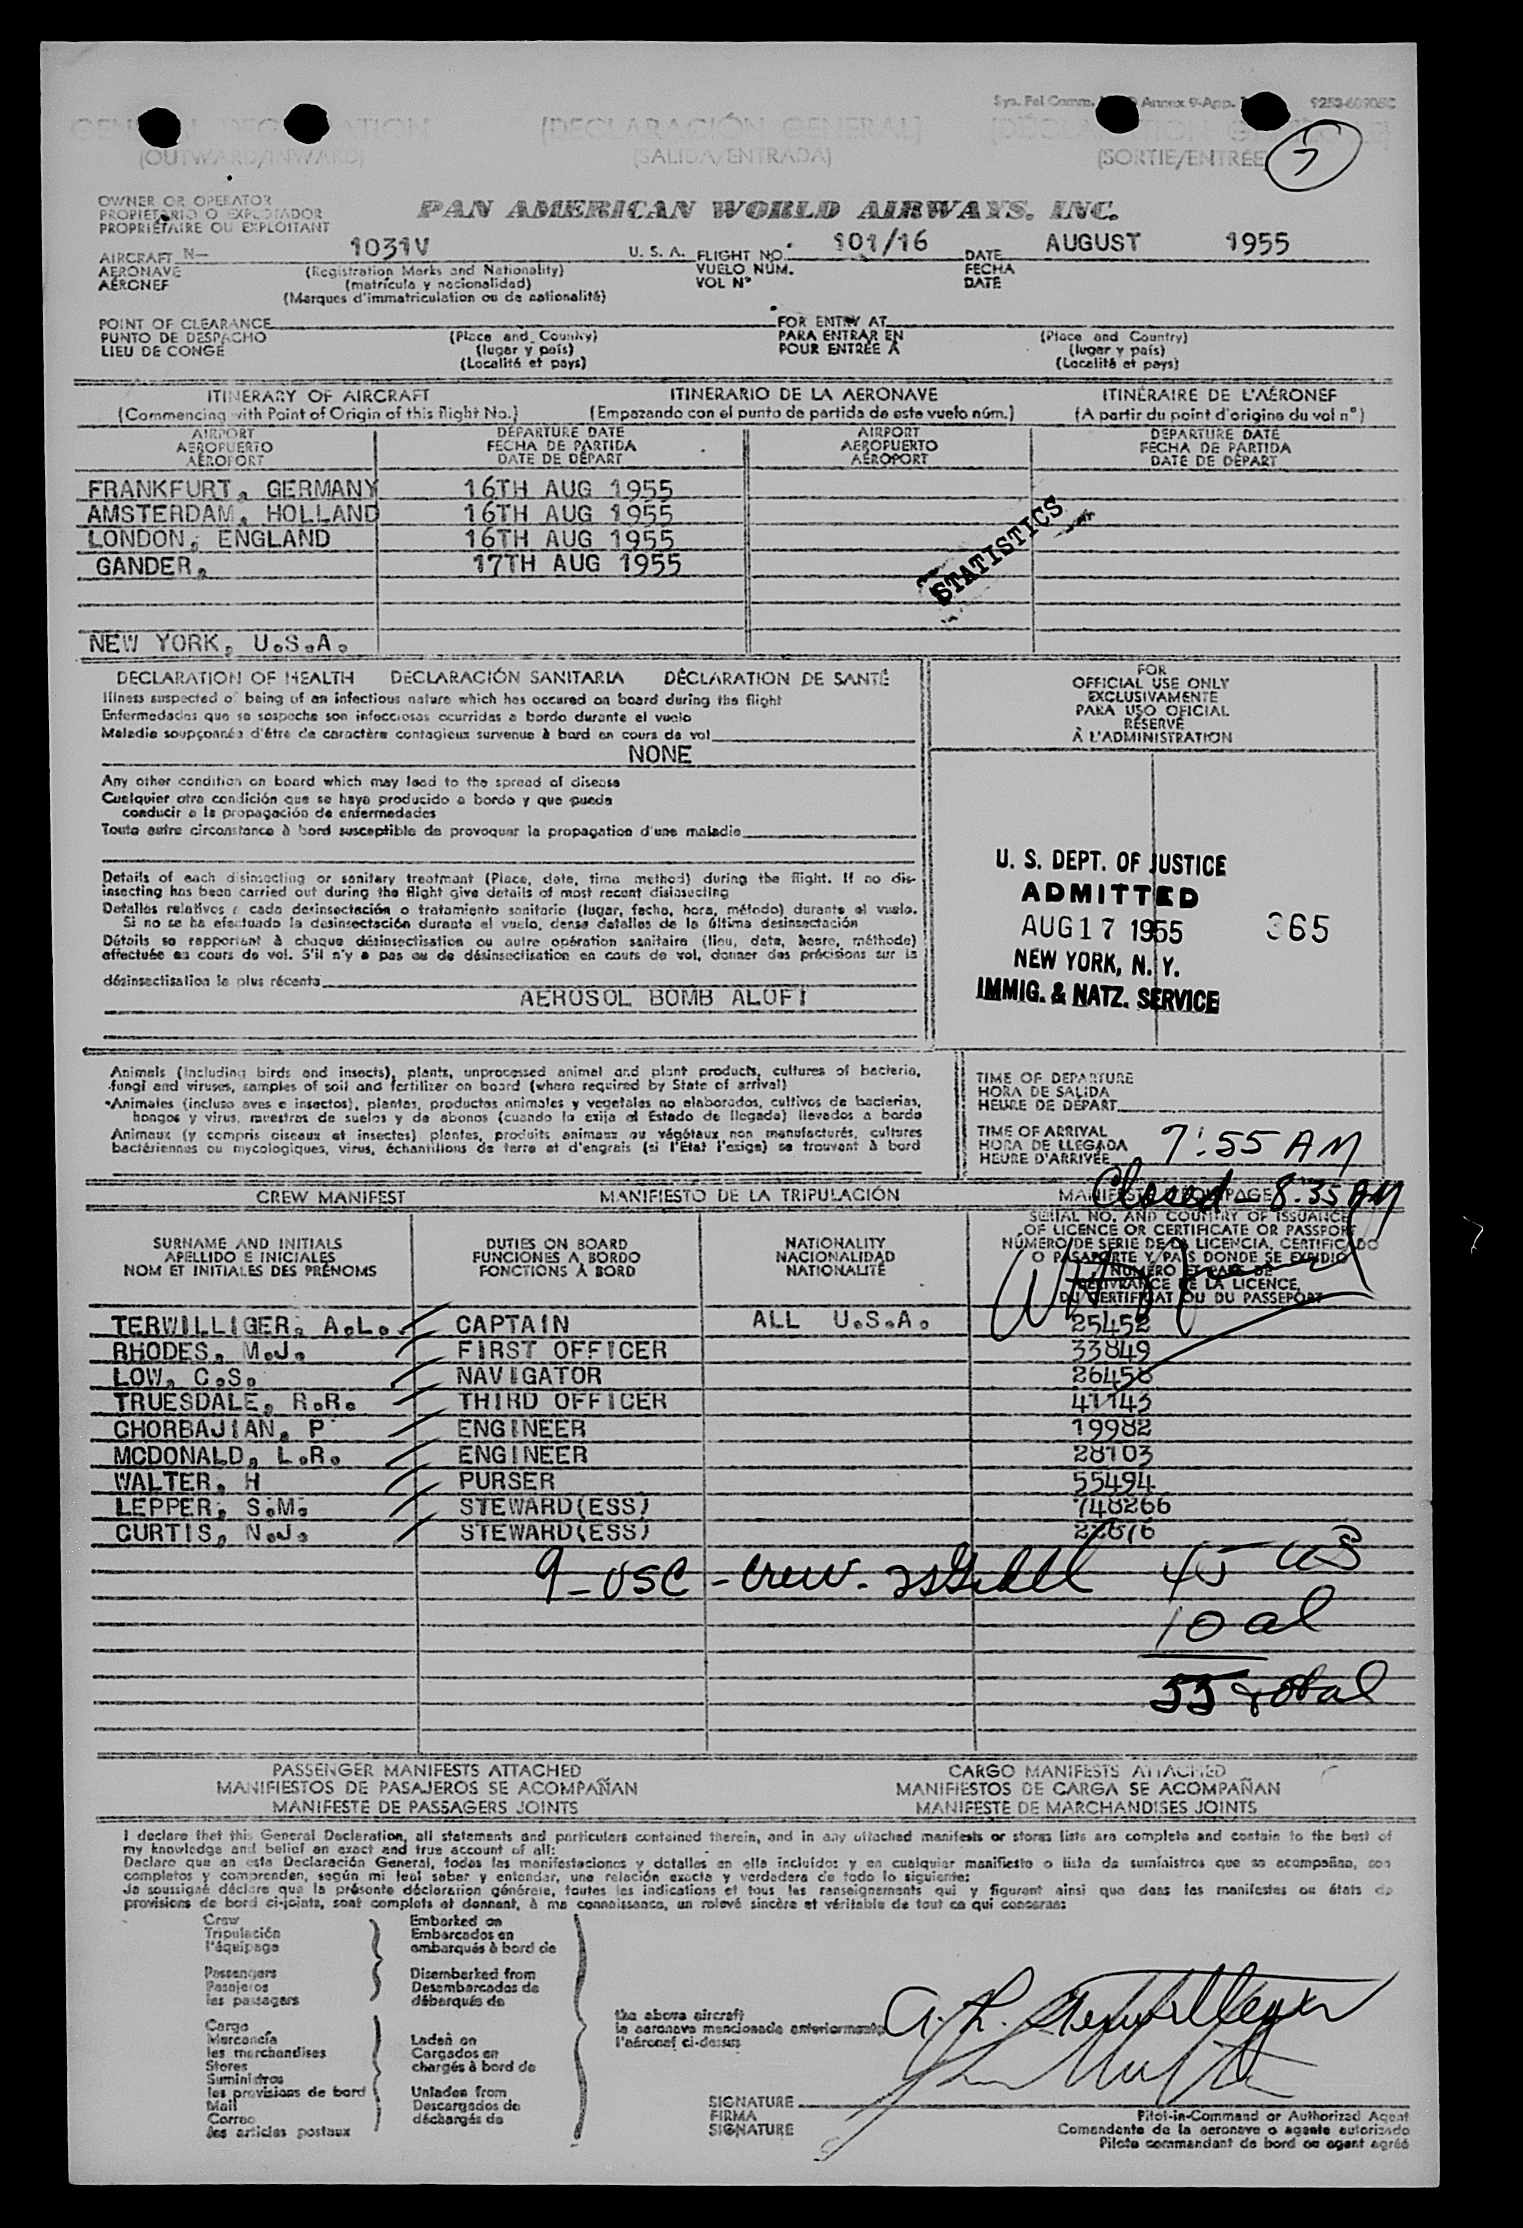 Annex 9-App.
GENERAL DECLARATION [DECLARACIÓN GENERAL]
(OUTWARD/INWARD) (SALIDA/ENTRADA) (SORTIE/ENTRÉE
7
OWNER OR OPERATOR
PROPIETARIO O EXPLOTADOR
PROPRIÉTAIRE OU EXPLOITANT
PAN AMERICAN WORLD AIRWAYS, INC.
AIRCRAFT N— 1031V U. S. A. FLIGHT NO. 101/16 DATE AUGUST 1955
AERONAVE (Registration Marks and Nationality) VUELO NÚM. FECHA
AÉRONEF (matrícula y nacionalidad) VOL Nº DATE
(Marques d'immatriculation ou de nationalité)
POINT OF CLEARANCE FOR ENTRY AT
PUNTO DE DESPACHO (Place and Country) PARA ENTRAR EN (Place and Country)
LIEU DE CONGÉ (lugar y país) POUR ENTRÉE À (lugar y país)
(Localité et pays) (Localité et pays)
ITINERARY OF AIRCRAFT ITINERARIO DE LA AERONAVE ITINÉRAIRE DE L'AÉRONEF
(Commencing with Point of Origin of this flight No.) (Empezando con el punto de partida de este vuelo núm.) (A partir du point d'origine du vol nº)
AIRPORT DEPARTURE DATE AIRPORT DEPARTURE DATE
AEROPUERTO FECHA DE PARTIDA AEROPUERTO FECHA DE PARTIDA
AÉROPORT DATE DE DÉPART AÉROPORT DATE DE DÉPART
FRANKFURT, GERMANY 16TH AUG 1955
AMSTERDAM, HOLLAND 16TH AUG 1955
LONDON, ENGLAND 16TH AUG 1955
GANDER, 17TH AUG 1955
STATISTICS
NEW YORK, U.S.A.
DECLARATION OF HEALTH DECLARACIÓN SANITARIA DÉCLARATION DE SANTÉ
Illness suspected of being of an infectious nature which has occured on board during the flight
Enfermedades que se sospeche son infecciosas ocurridas a bordo durante el vuelo
Maladie soupçonnée d'être de caractère contagieux survenue à bord en cours de vol
NONE
Any other condition on board which may lead to the spread of disease
Cualquier otra condición que se haya producido a bordo y que pueda
conducir a la propagación de enfermedades
Toute autre circonstance à bord susceptible de provoquer la propagation d'une maladie
Details of each disinsecting or sanitary treatment (Place, date, time method) during the flight. If no dis-
insecting has been carried out during the flight give details of most recent disinsecting
Detalles relativos a cada desinsectación o tratamiento sanitario (lugar, fecha, hora, método) durante el vuelo.
Si no se ha efectuado la desinsectación durante el vuelo, dense detalles de la última desinsectación
Détails se rapportant à chaque désinsectisation ou autre opération sanitaire (lieu, date, heure, méthode)
effectuée au cours de vol. S'il n'y a pas eu de désinsectisation en cours de vol, donner des précisions sur la
désinsectisation la plus récente
AEROSOL BOMB ALOFT
FOR
OFFICIAL USE ONLY
EXCLUSIVAMENTE
PARA USO OFICIAL
RÉSERVÉ
À L'ADMINISTRATION
U. S. DEPT. OF JUSTICE
ADMITTED
AUG 17 1955 365
NEW YORK, N. Y.
IMMIG. & NATZ. SERVICE
Animals (including birds and insects), plants, unprocessed animal and plant products, cultures of bacteria,
fungi and viruses, samples of soil and fertilizer on board (where required by State of arrival)
Animales (incluso aves e insectos), plantas, productos animales y vegetales no elaborados, cultivos de bacterias,
hongos y virus, muestras de suelos y de abonos (cuando lo exija el Estado de llegada) llevados a bordo
Animaux (y compris oiseaux et insectes) plantes, produits animaux ou végétaux non manufacturés, cultures
bactériennes ou mycologiques, virus, échantillons de terre et d'engrais (si l'État l'exige) se trouvant à bord
TIME OF DEPARTURE
HORA DE SALIDA
HEURE DE DÉPART
TIME OF ARRIVAL
HORA DE LLEGADA
HEURE D'ARRIVÉE
7:55 AM
Closed — 8:35 AM
CREW MANIFEST MANIFIESTO DE LA TRIPULACIÓN
SURNAME AND INITIALS DUTIES ON BOARD NATIONALITY SERIAL NO. AND COUNTRY OF ISSUANCE
APELLIDO E INICIALES FUNCIONES A BORDO NACIONALIDAD OF LICENCE OR CERTIFICATE OR PASSPORT
NOM ET INITIALES DES PRÉNOMS FONCTIONS À BORD NATIONALITÉ NÚMERO DE SERIE DE LA LICENCIA, CERTIFICADO
O PASAPORTE Y PAÍS DONDE SE EXPIDIÓ
NUMÉRO ET PAYS DE
DÉLIVRANCE DE LA LICENCE,
DU CERTIFICAT OU DU PASSEPORT
TERWILLIGER, A.L. CAPTAIN ALL U.S.A. 25452
RHODES, M.J. FIRST OFFICER 33849
LOW, C.S. NAVIGATOR 26458
TRUESDALE, R.R. THIRD OFFICER 41143
CHORBAJIAN, P ENGINEER 19982
MCDONALD, L.R. ENGINEER 28103
WALTER, H PURSER 55494
LEPPER, S.M. STEWARD(ESS) 748266
CURTIS, N.J. STEWARD(ESS)
9 – USC – Crew. 45 US
10 al
55 total
PASSENGER MANIFESTS ATTACHED CARGO MANIFESTS ATTACHED
MANIFIESTOS DE PASAJEROS SE ACOMPAÑAN MANIFIESTOS DE CARGA SE ACOMPAÑAN
MANIFESTE DE PASSAGERS JOINTS MANIFESTE DE MARCHANDISES JOINTS
I declare that this General Declaration, all statements and particulars contained therein, and in any attached manifests or stores lists are complete and contain to the best of
my knowledge and belief an exact and true account of all:
Declaro que en esta Declaración General, todas las manifestaciones y detalles en ella incluidos y en cualquier manifiesto o lista de suministros que se acompañan, son
completos y comprenden, según mi leal saber y entender, una relación exacta y verdadera de todo lo siguiente:
Je soussigné déclare que la présente déclaration générale, toutes les indications et tous les renseignements qui y figurent ainsi que dans les manifestes ou états de
provisions de bord ci-joints, sont complets et donnent, à ma connaissance, un relevé sincère et véritable de tout ce qui concerne:
Crew Embarked on
Tripulación Embarcados en
l'équipage embarqués à bord de
Passengers Disembarked from
Pasajeros Desembarcados de
les passagers débarqués de
Cargo
Mercancía Laden on
les marchandises Cargados en
Stores chargés à bord de
Suministros
les provisions de bord Unladen from
Mail Descargados de
Correo déchargés de
les articles postaux
the above aircraft
la aeronave mencionada anteriormente
l'aéronef ci-dessus
A. L. Terwilliger
SIGNATURE
FIRMA
SIGNATURE
Pilot-in-Command or Authorized Agent
Comandante de la aeronave o agente autorizado
Pilote commandant de bord ou agent agréé